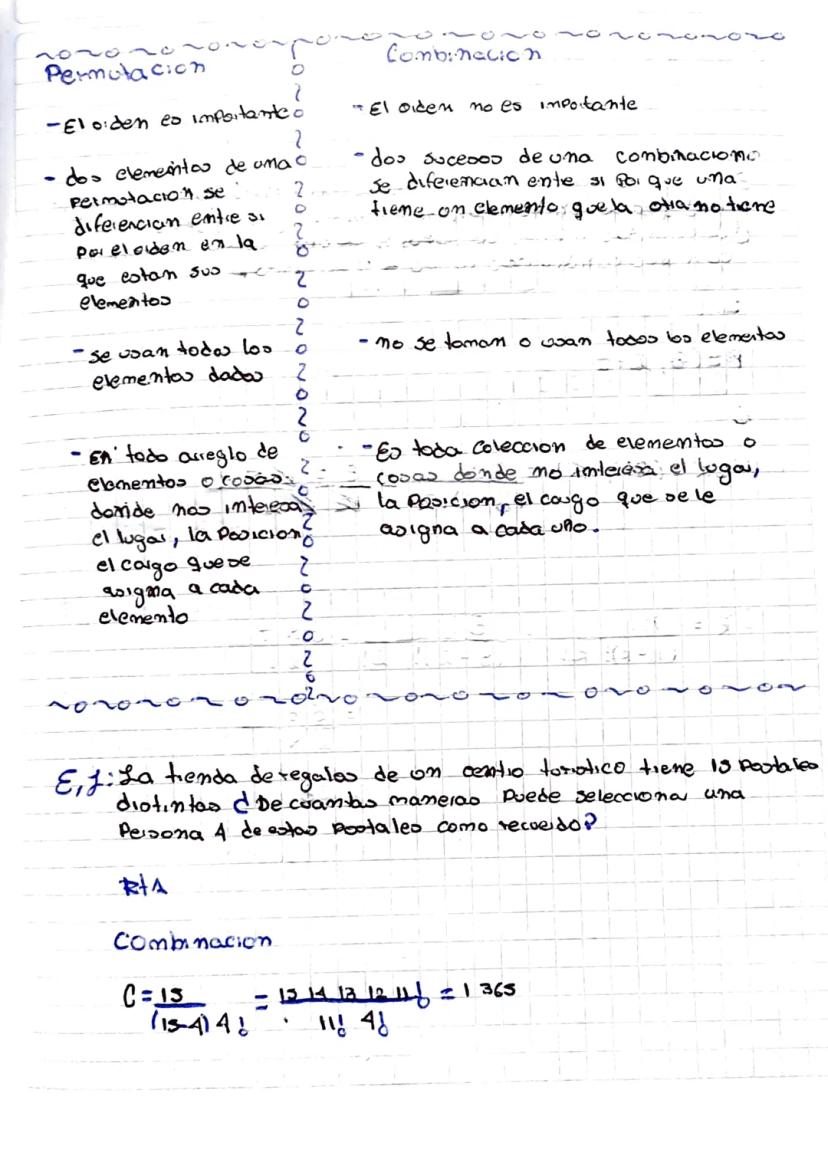 Permutacion
- El orden es importante
- dos elementos de una
permutacion se
diferencian entre si
por el orden en la
que estan sus
elementos
- se usan todos los
elementos dados
- En todo arreglo de
elementos o cosas
donde nos interesa
el lugar, la posicion
el cargo que se
asigna a cada
elemento
Combinacion
- El orden no es importante
- dos sucesos de una combinacion
se diferencian ente si por que una
tiene un elemento que la otra no tiene
- no se toman o usan todos los elementos
- Es toda coleccion de elementos o
cosas donde no interesa el lugar,
la posicion, el cargo que se le
asigna a cada uno.
Ej: La tienda de regalos de un centro turistico tiene 15 Postales
distintas ¿De cuantas maneras puede selecciona una
Persona 4 de estas postales como recuerdo?
RtA
Combinacion
C = 15 / (15-4) 4! = 15 14 13 12 11! / 11! 4! = 1 365